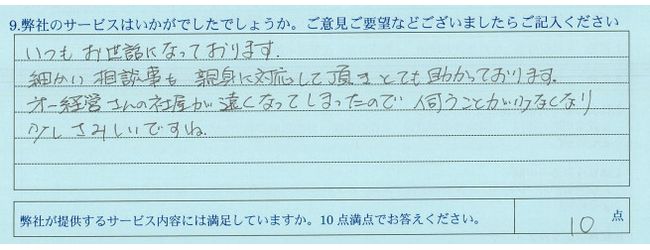 9.弊社のサービスはいかがでしたでしょうか。ご意見ご要望などございましたらご記入ください
いつもお世話になっております.
細かい相談事も親身に対応して頂きとても助かっております.
オー経営さんの社屋が遠くなってしまったので伺うことが少なくなり
少しさみしいですね.
弊社が提供するサービス内容には満足していますか。10点満点でお答えください。 10 点